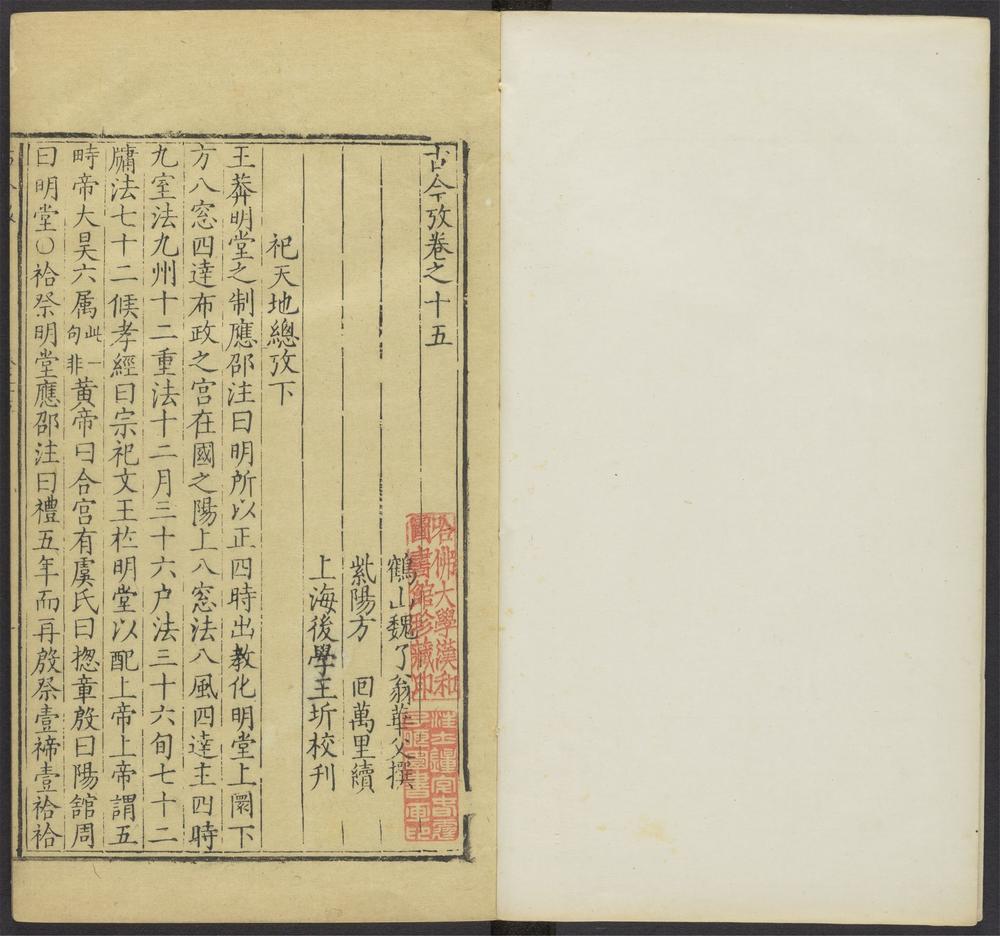 古今攷卷之十五
鶴山魏了翁華父撰
紫陽方 回萬里續
上海後學王圻校刊
祀天地總攷下
王莽明堂之制應邵注曰明所以正四時出教化明堂上圜下
方八窓四達布政之宮在國之陽上八窓法八風四達主四時
九室法九州十二重法十二月三十六户法三十六旬七十二
牖法七十二候孝經曰宗祀文王於明堂以配上帝上帝謂五
畤帝大昊六属此一句非黄帝曰合宮有虞氏曰揔章殷曰陽舘周
曰明堂○祫祭明堂應邵注曰禮五年而再殷祭壹禘壹祫祫
哈佛大學漢和
圖書館珍藏印